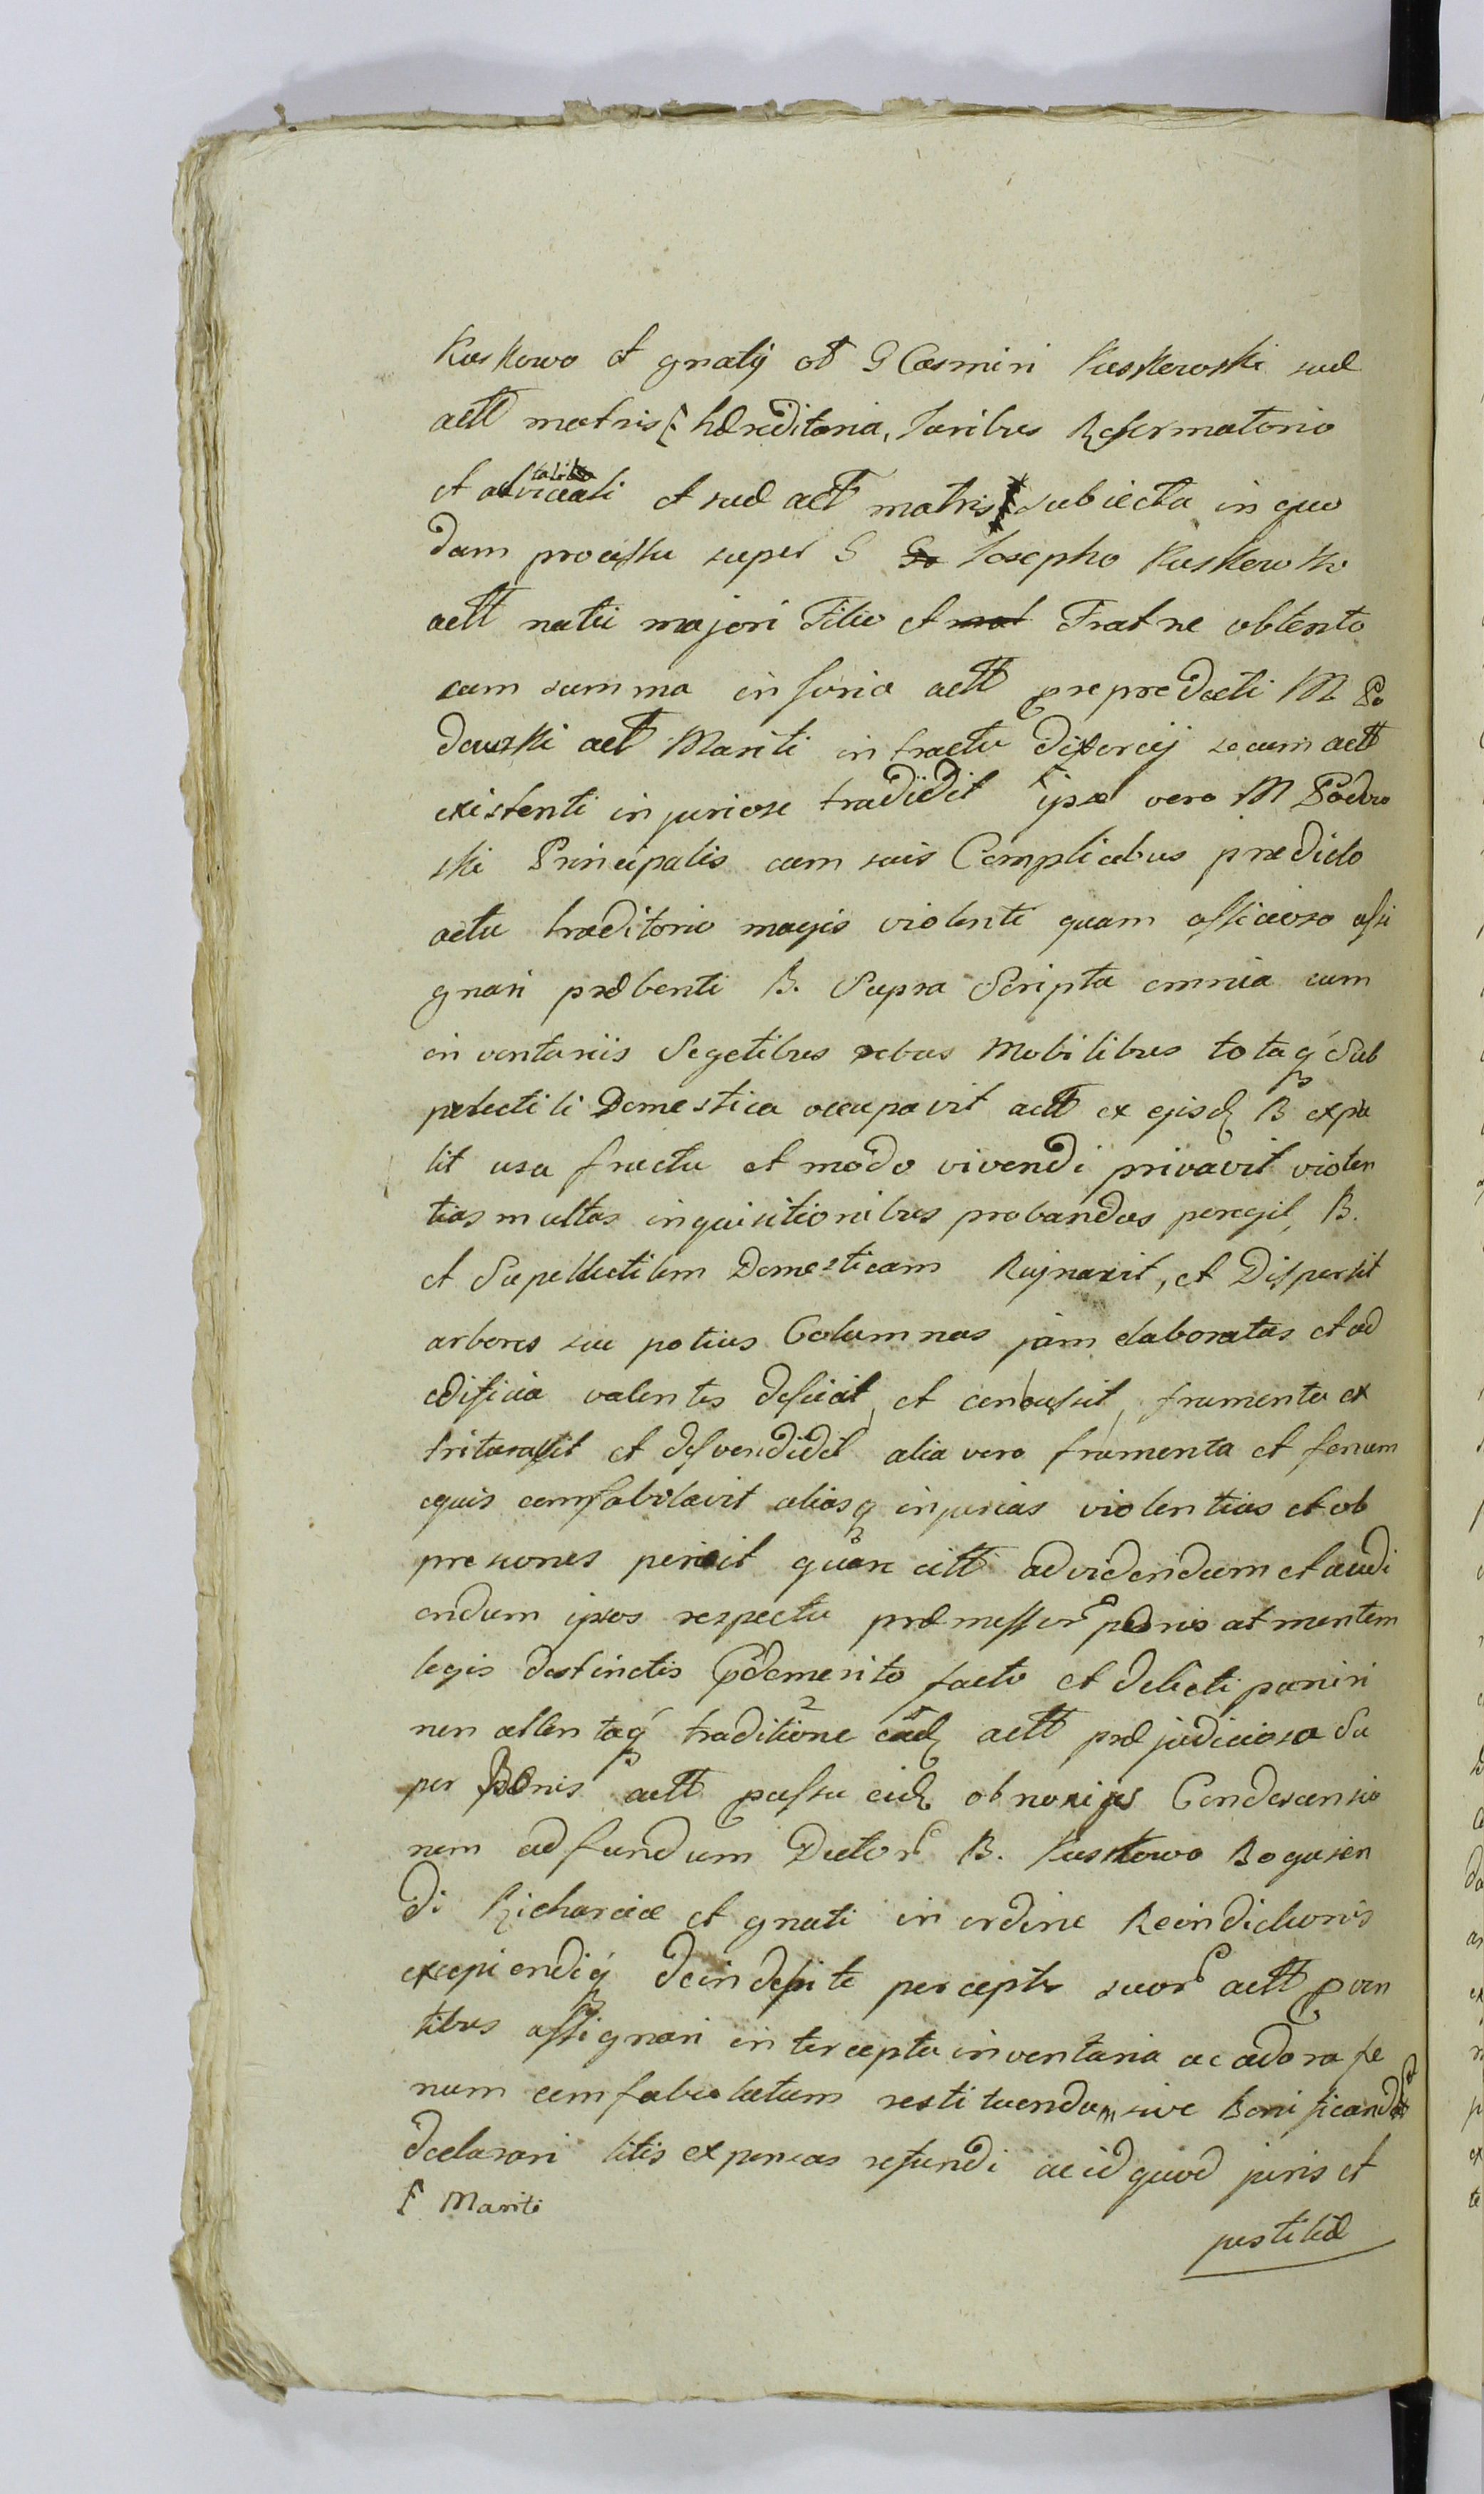 Kuskowo et gnatij ob G Casmiri Kuskowski sud
actt matris hæreditaria, Juribus Reformatorio
et advitali et sud act matris subiecta in quo
dam processu super G Josepho Kuskowsko
actt natu majori Filio et mat Fratre obtento
cum summa injuria actt præpredicti M. Po
dowski act Mariti in tractu Divorcij secum actt
existenti injuriose tradidit ipse vero M Podow
ski Principalis cum suis Complicebus prædicto
actu traditorio magis violente quam officioso assi
gnari præbenti B. Supra Scripta omnia cum
inventariis Segetibus rebus Mobilibus totaq Sub
pelectili Domestica occupavit actt ex ejisd B expu
lit usu fructu et modo vivendi privavit violen
tias multas inquisitionibus probandas peregit, B.
et Supellectilem Domesticam Rujnavit, et Dispersit
arbores sui potius Columnas jam elaboratas et ad
edificia valentes defecit, et conbussit, frumenta ex
triturassit et desvendidit alia vero frumenta et fenum
equis comfabulavit aliasq injurias violentias et ob
presiones perecit quare citt ad videndum et audi
endum ipsos respectu præmissor pænis at mentem
legis destinctis Pdemerito facto et delicti puniri
non attentaq traditione ead actt præjudiciosa Su
per Bonis actt passu eid obnoxijs Condescensio
nem ad fundum Dictor B. Kuskowo Bogusen
di Richarcice et gnati in ordine Reindictionis
excepiendiq deindesite percepta suor actt Pven
tibus assignari intercepta inventaria ac adora fe
num comfabulatum restituendum sive Bonificand
declarari litis expensas refundi ac id quod juris et
F Mariti
justitiæ